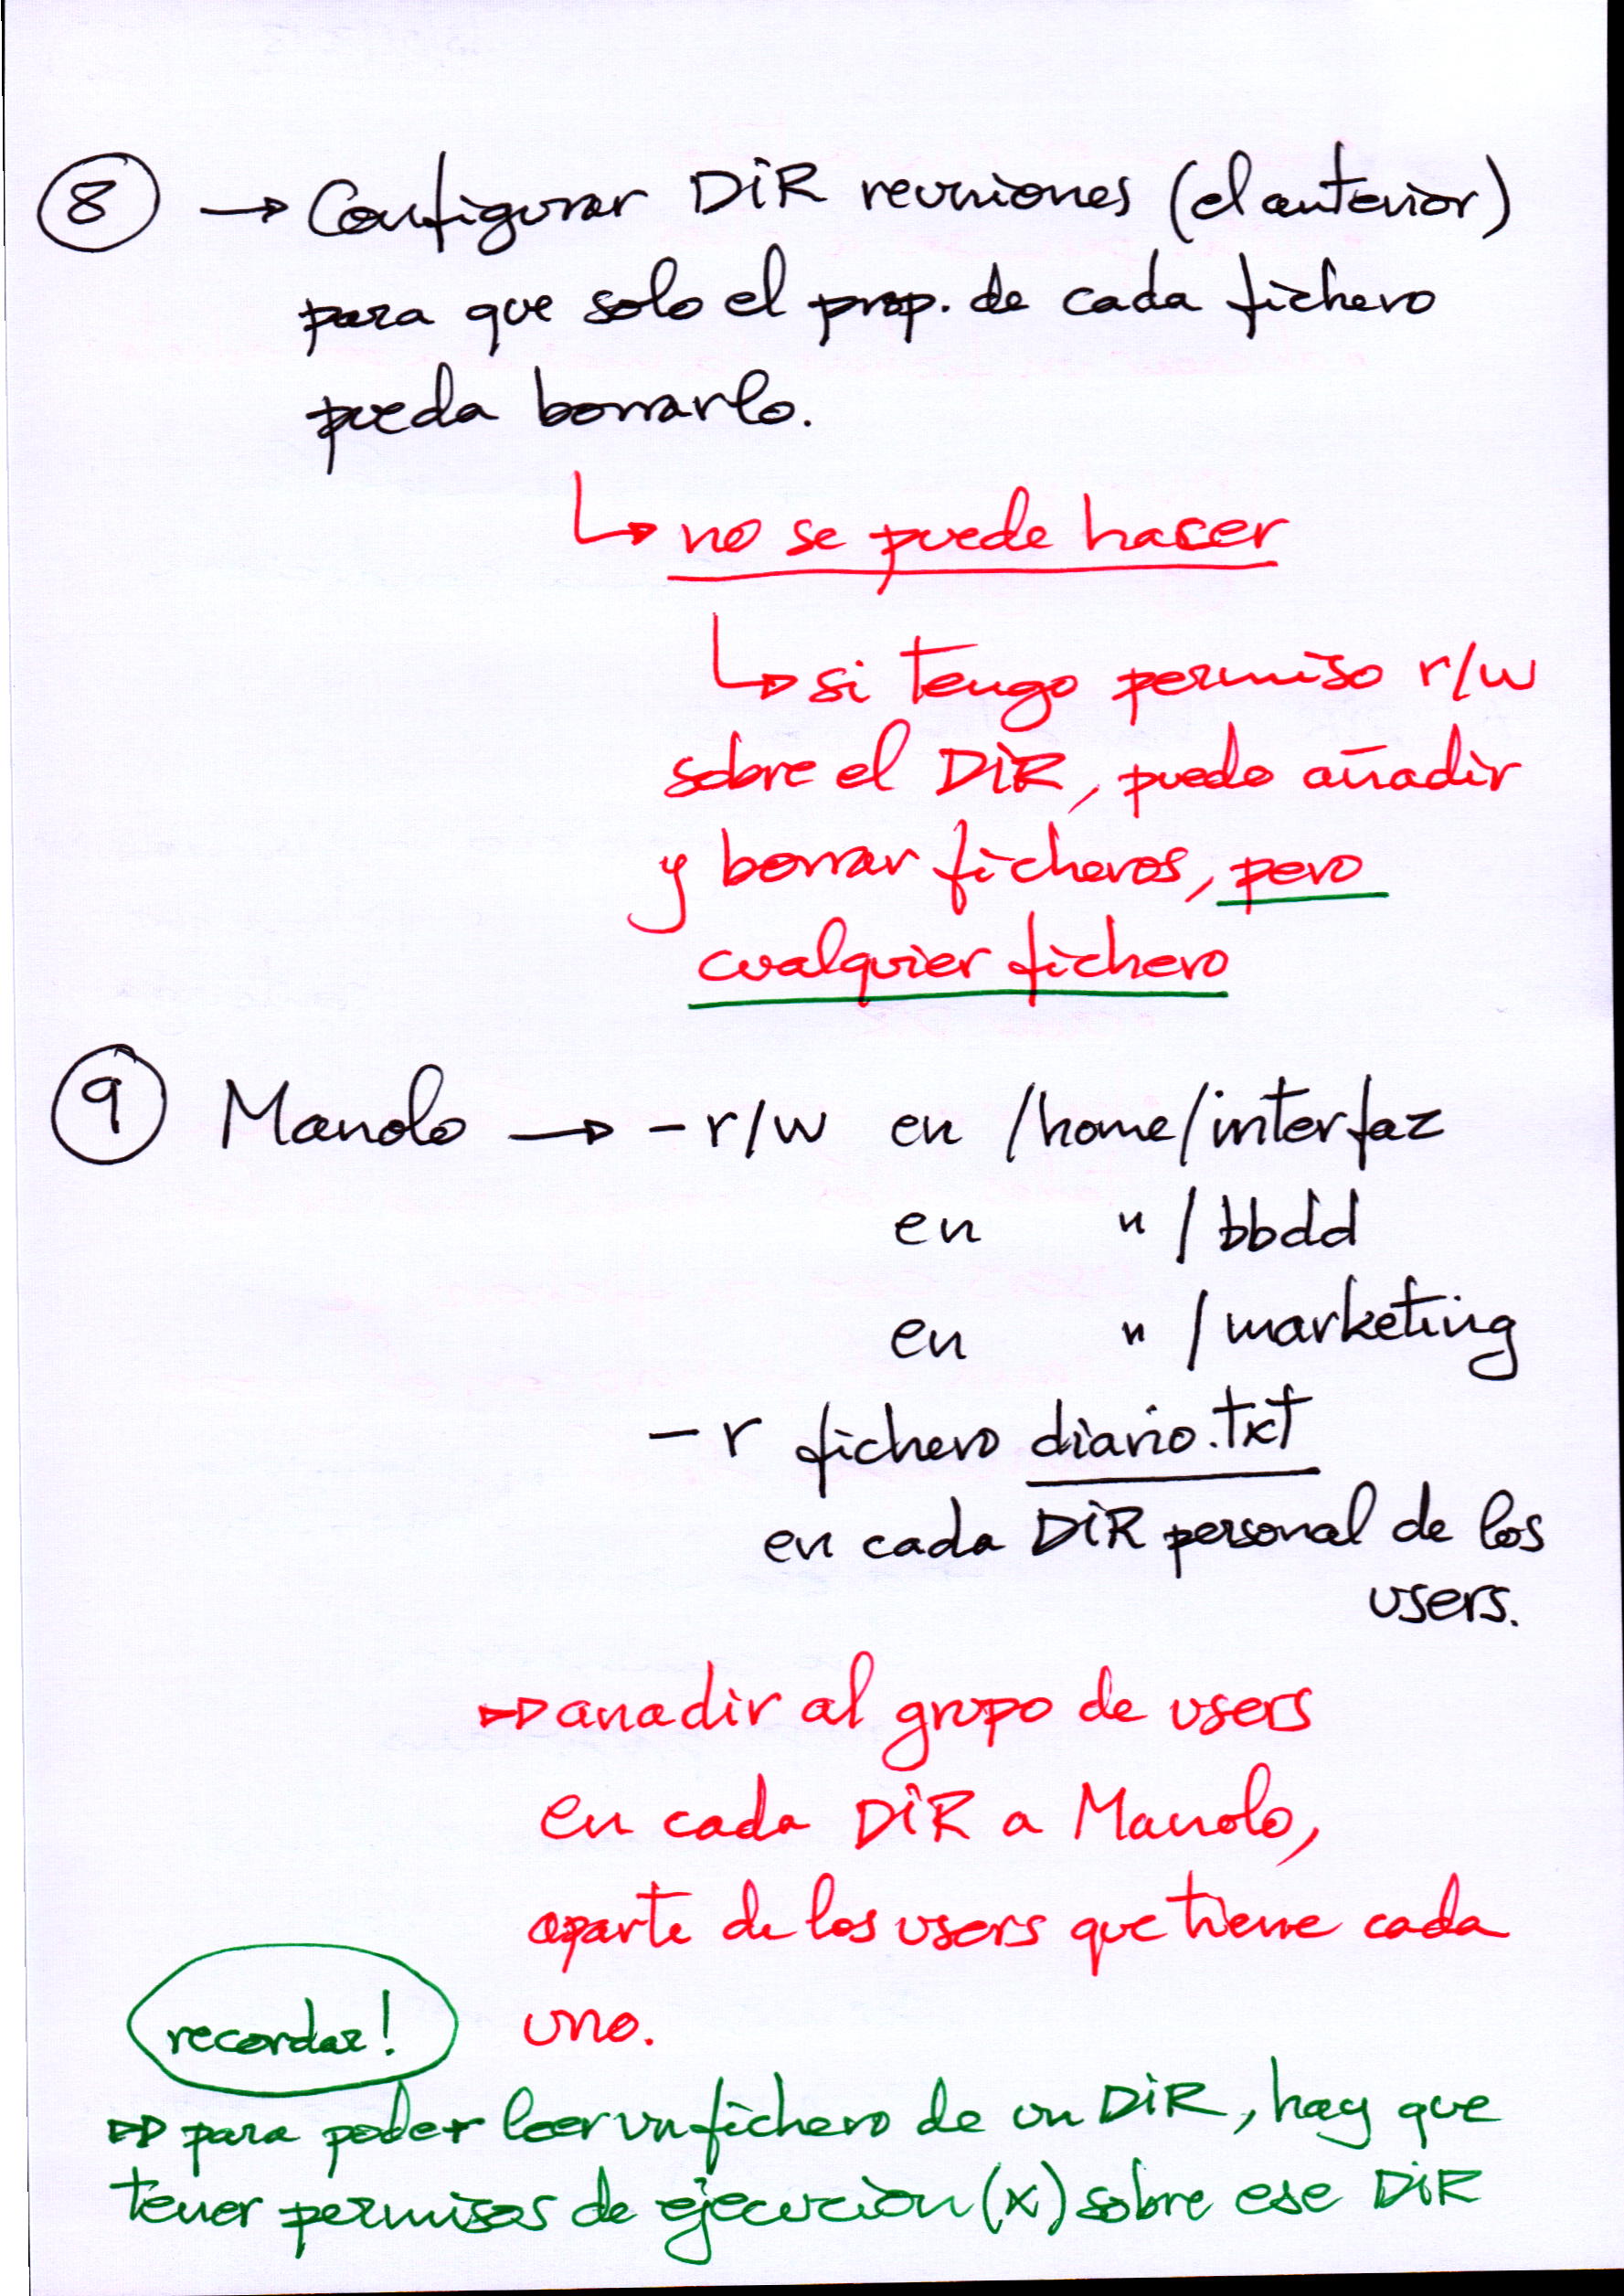 8 → Configurar DIR reuniones (el anterior)
para que solo el prop. de cada fichero
pueda borrarlo.
↳ no se puede hacer
↳ si tengo permiso r/w
sobre el DIR, puedo añadir
y borrar ficheros, pero
cualquier fichero
9 Manolo → - r/w en /home/interfaz
en " / bbdd
en " / marketing
- r fichero diario.txt
en cada DIR personal de los
users.
→ anadir al grupo de users
en cada DIR a Manolo,
aparte de los users que tiene cada
uno.
recordar!
→ para poder leer un fichero de un DIR, hay que
tener permisos de ejecución (x) sobre ese DIR